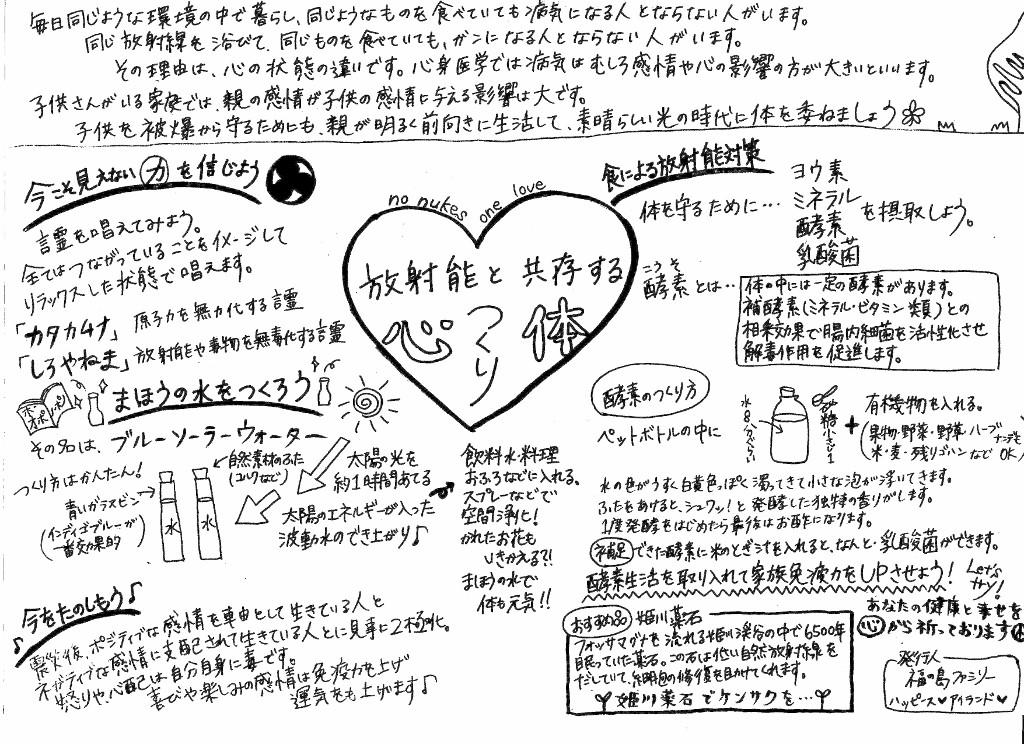 毎日同じような環境の中で暮らし、同じようなものを食べていても病気になる人とならない人がいます。
同じ放射線を浴びて、同じものを食べていても、ガンになる人とならない人がいます。
その理由は、心の状態の違いです。心身医学では病気はむしろ感情や心の影響の方が大きいといいます。
子供さんがいる家庭では、親の感情が子供の感情に与える影響は大です。
子供を被爆から守るためにも、親が明るく前向きに生活して、素晴らしい光の時代に体を委ねましょう
今こそ見えない力を信じよう
言霊を唱えてみよう。
全てはつながっていることをイメージして
リラックスした状態で唱えます。
「カタカムナ」原子力を無力化する言霊
「しろやねま」放射能や毒物を無毒化する言霊
まほうの水をつくろう
ホ゜オポノ
その名は、ブルーソーラーウォーター
つくり方はかんたん!
自然素材のふた
(コルクなど)
青いガラスビン
(インディゴブルーが
一番効果的)
水
水
太陽の光を
約1時間あてる
太陽のエネルギーが入った
波動水のでき上がり♪
飲料水料理
おふろなどに入れる。
スプレーなどで
空間浄化!
かれたお花も
いきかえる?!
まほうの水で
体も元気!!
今をたのしもう♪
震災後、ポジティブな感情を自由として生きている人と
ネガティブな感情に支配されて生きている人とに見事に2極化。
怒りや心配は自分自身に毒です。
喜びや楽しみの感情は免疫力を上げ
運気をも上げます♪
no nukes one love
放射能と共存する
心つくり体
食による放射能対策
体を守るために…
ヨウ素
ミネラル
酵素
乳酸菌
を摂取しよう。
こうそ
酵素とは…
体の中には一定の酵素があります。
補酵素(ミネラル・ビタミン類)との
相乗効果で腸内細菌を活性化させ
解毒作用を促進します。
酵素のつくり方
ペットボトルの中に
水8分ぐらい
糖小さじ1
+
有機物を入れる。
(果物・野菜・野草・ハーブ
米・麦・残りゴハンなど ナンデモOK)
水の色がうすく白黄色っぽく濁ってきて小さな泡が浮いてきます。
ふたをあけると、シュワッ!と発酵した独特の香りがします。
1度発酵をはじめたら最後はお酢になります。
補足 できた酵素に米のとぎ汁を入れると、なんと・乳酸菌ができます。
酵素生活を取り入れて家族免疫力をUPさせよう!
Let's
サノ!
おすすめ品 姫川薬石
フォッサマグナを流れる姫川渓谷の中で6500年
眠っていた薬石。この石は低い自然放射線を
だしていて、細胞の修復を助けてくれます。
姫川薬石でケンサクを…
あなたの健康と幸せを
心から祈っております
発行人
福の島ファミリー
ハッピース♥アイランド♥